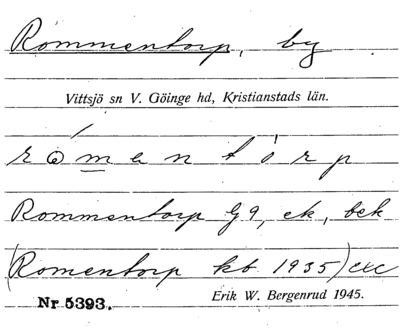 Rommentorp, by
Vittsjö sn V. Göinge hd, Kristianstads län.
Rommentorp G 9, ek, bek
(Romentorp kb 1935) etc
Nr 5393. Erik W. Bergenrud 1945.